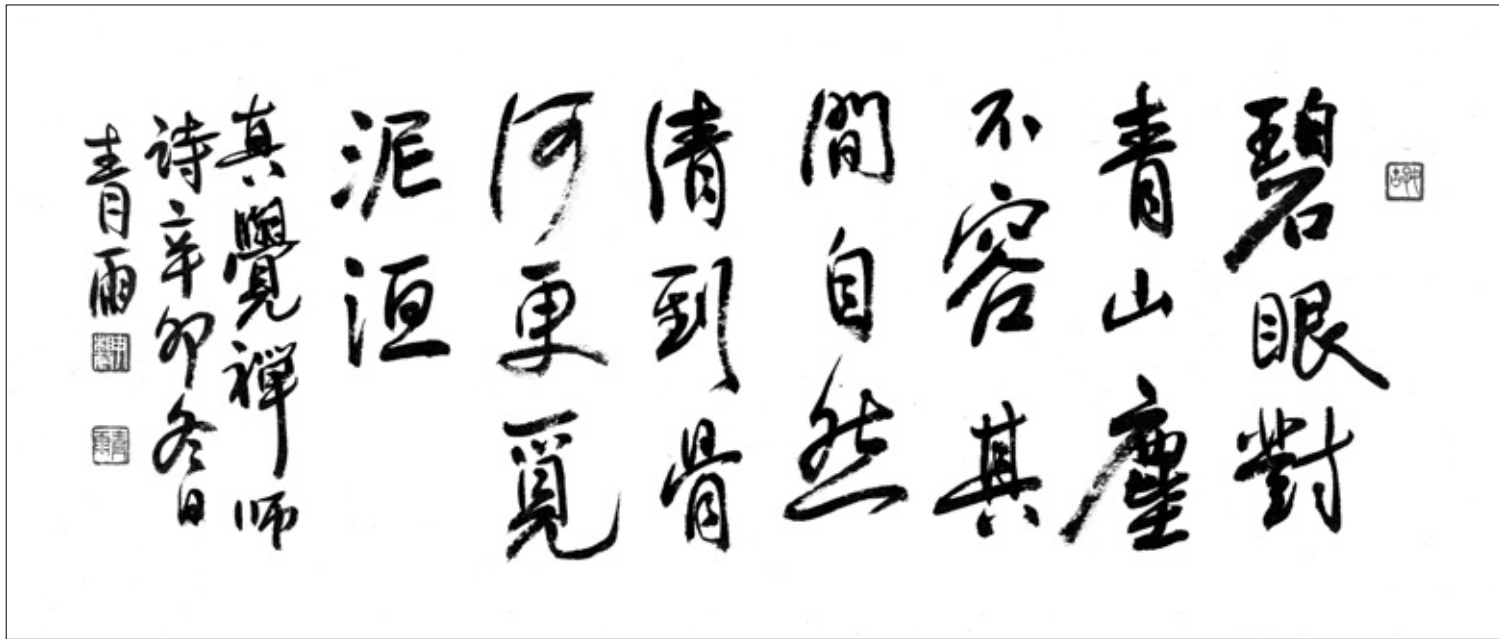 碧眼對
青山塵
不容其
間自然
清到骨
何更覓
泥洹
真覺禪师
诗辛卯冬日
青雨